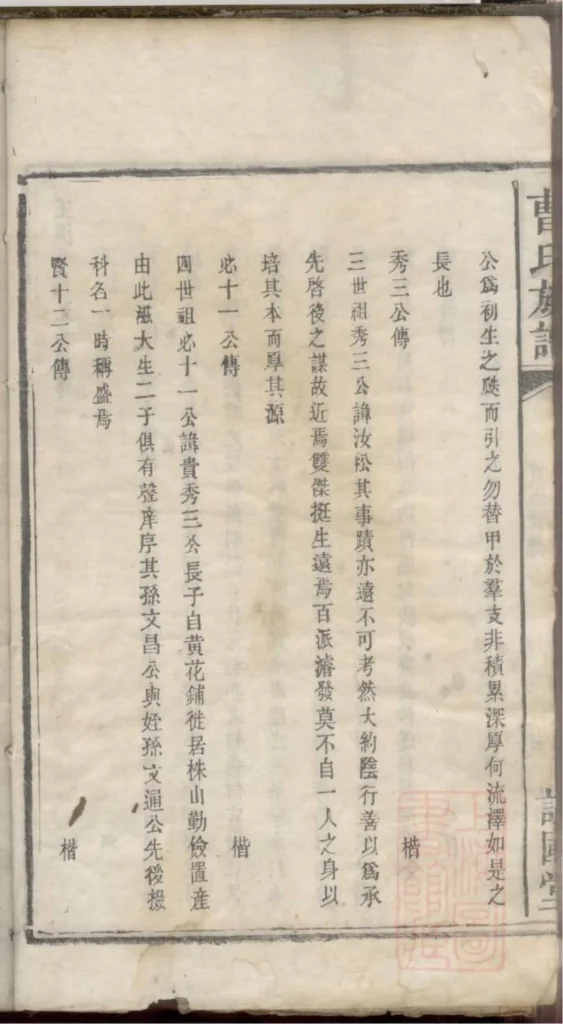 曹氏族譜
公爲初生之瓞而引之勿替甲於羣支非積累深厚何流澤如是之
長也
楷
秀三公傳
三世祖秀三公諱汝松其事蹟亦遠不可考然大約陰行善以爲承
先啓後之謀故近焉雙傑挺生遠焉百派濬發莫不自一人之身以
培其本而厚其源
楷
必十一公傳
四世祖必十一公諱貴秀三公長子自黃花鋪徙居株山勤儉置產
由此滋大生二子俱有聲庠序其孫文昌公與姪孫文通公先後掇
科名一時稱盛焉
楷
賢十二公傳